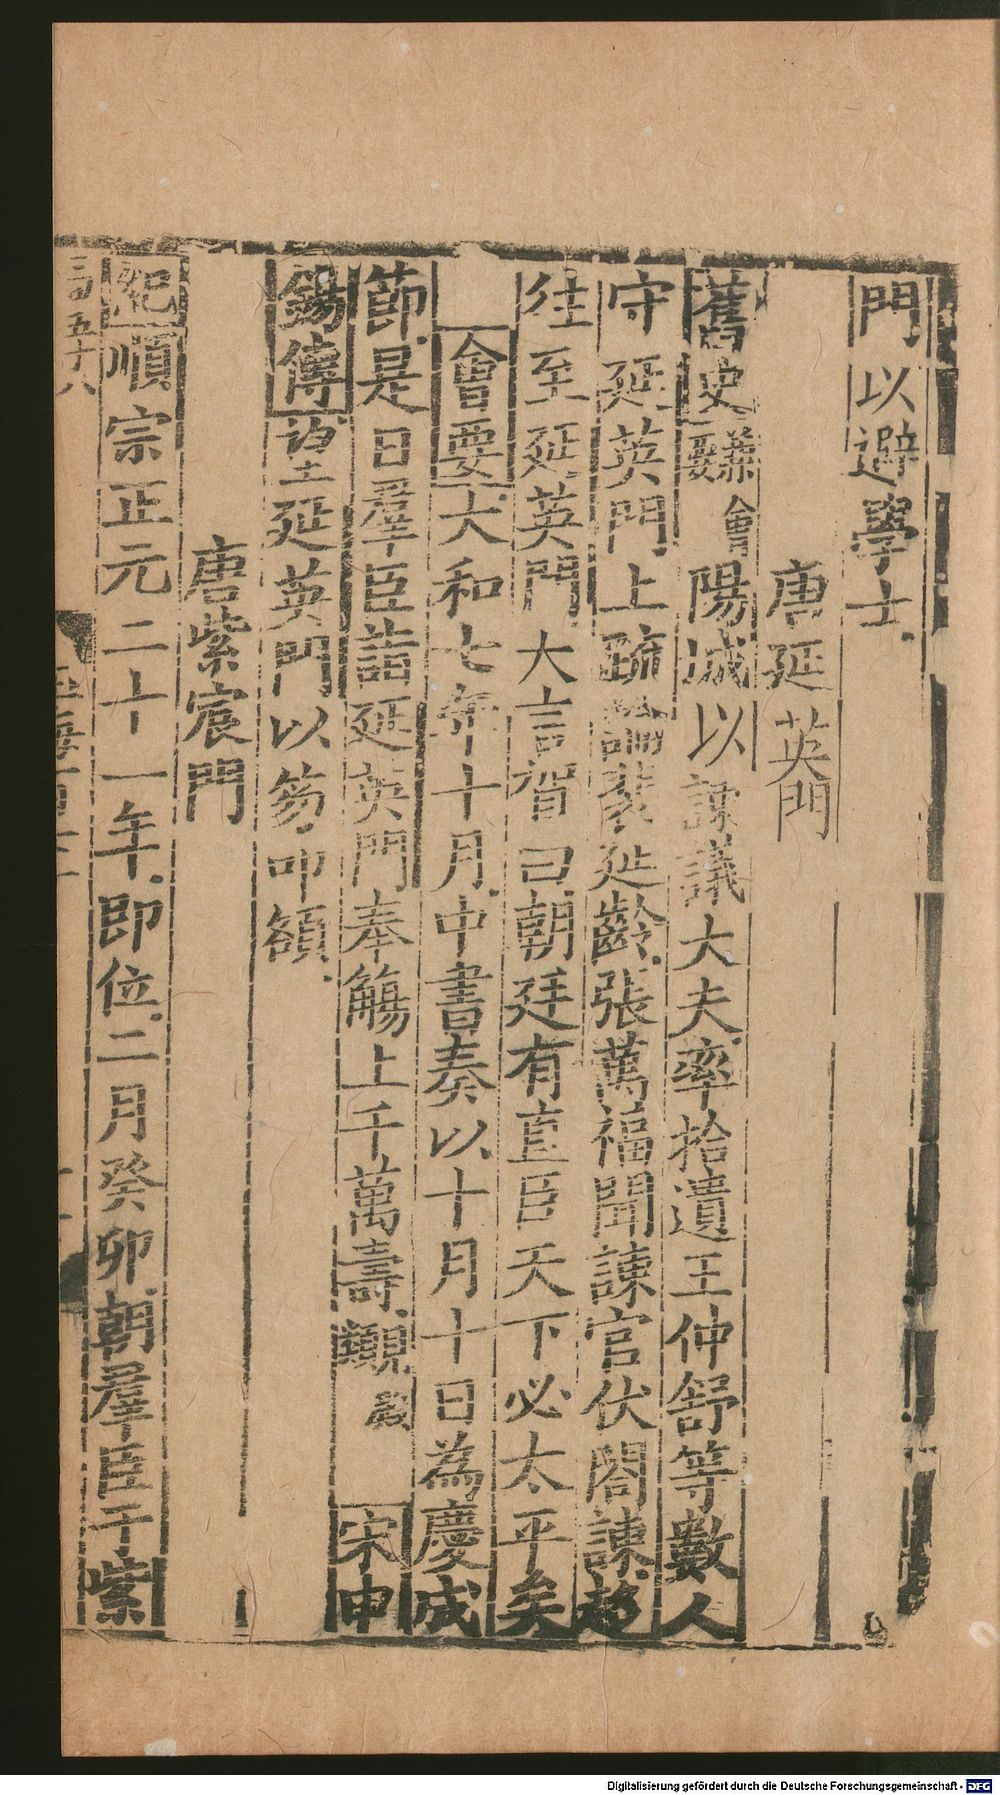 門以避學士
唐延英門
舊史兼會要陽城以諫議大夫率拾遺王仲舒等數人
守延英門上疏論裴延齡張萬福聞諫官伏閤諫趨
往至延英門大言賀曰朝廷有直臣天下必太平矣
會要大和七年十月中書奏以十月十日為慶成
節是日羣臣詣延英門奉觴上千萬壽 宋申
錫傳望延英門以笏叩額
唐紫宸門
紀順宗正元二十一年即位二月癸卯朝羣臣于紫
Digitalisierung gefördert durch die Deutsche Forschungsgemeinschaft - DFG